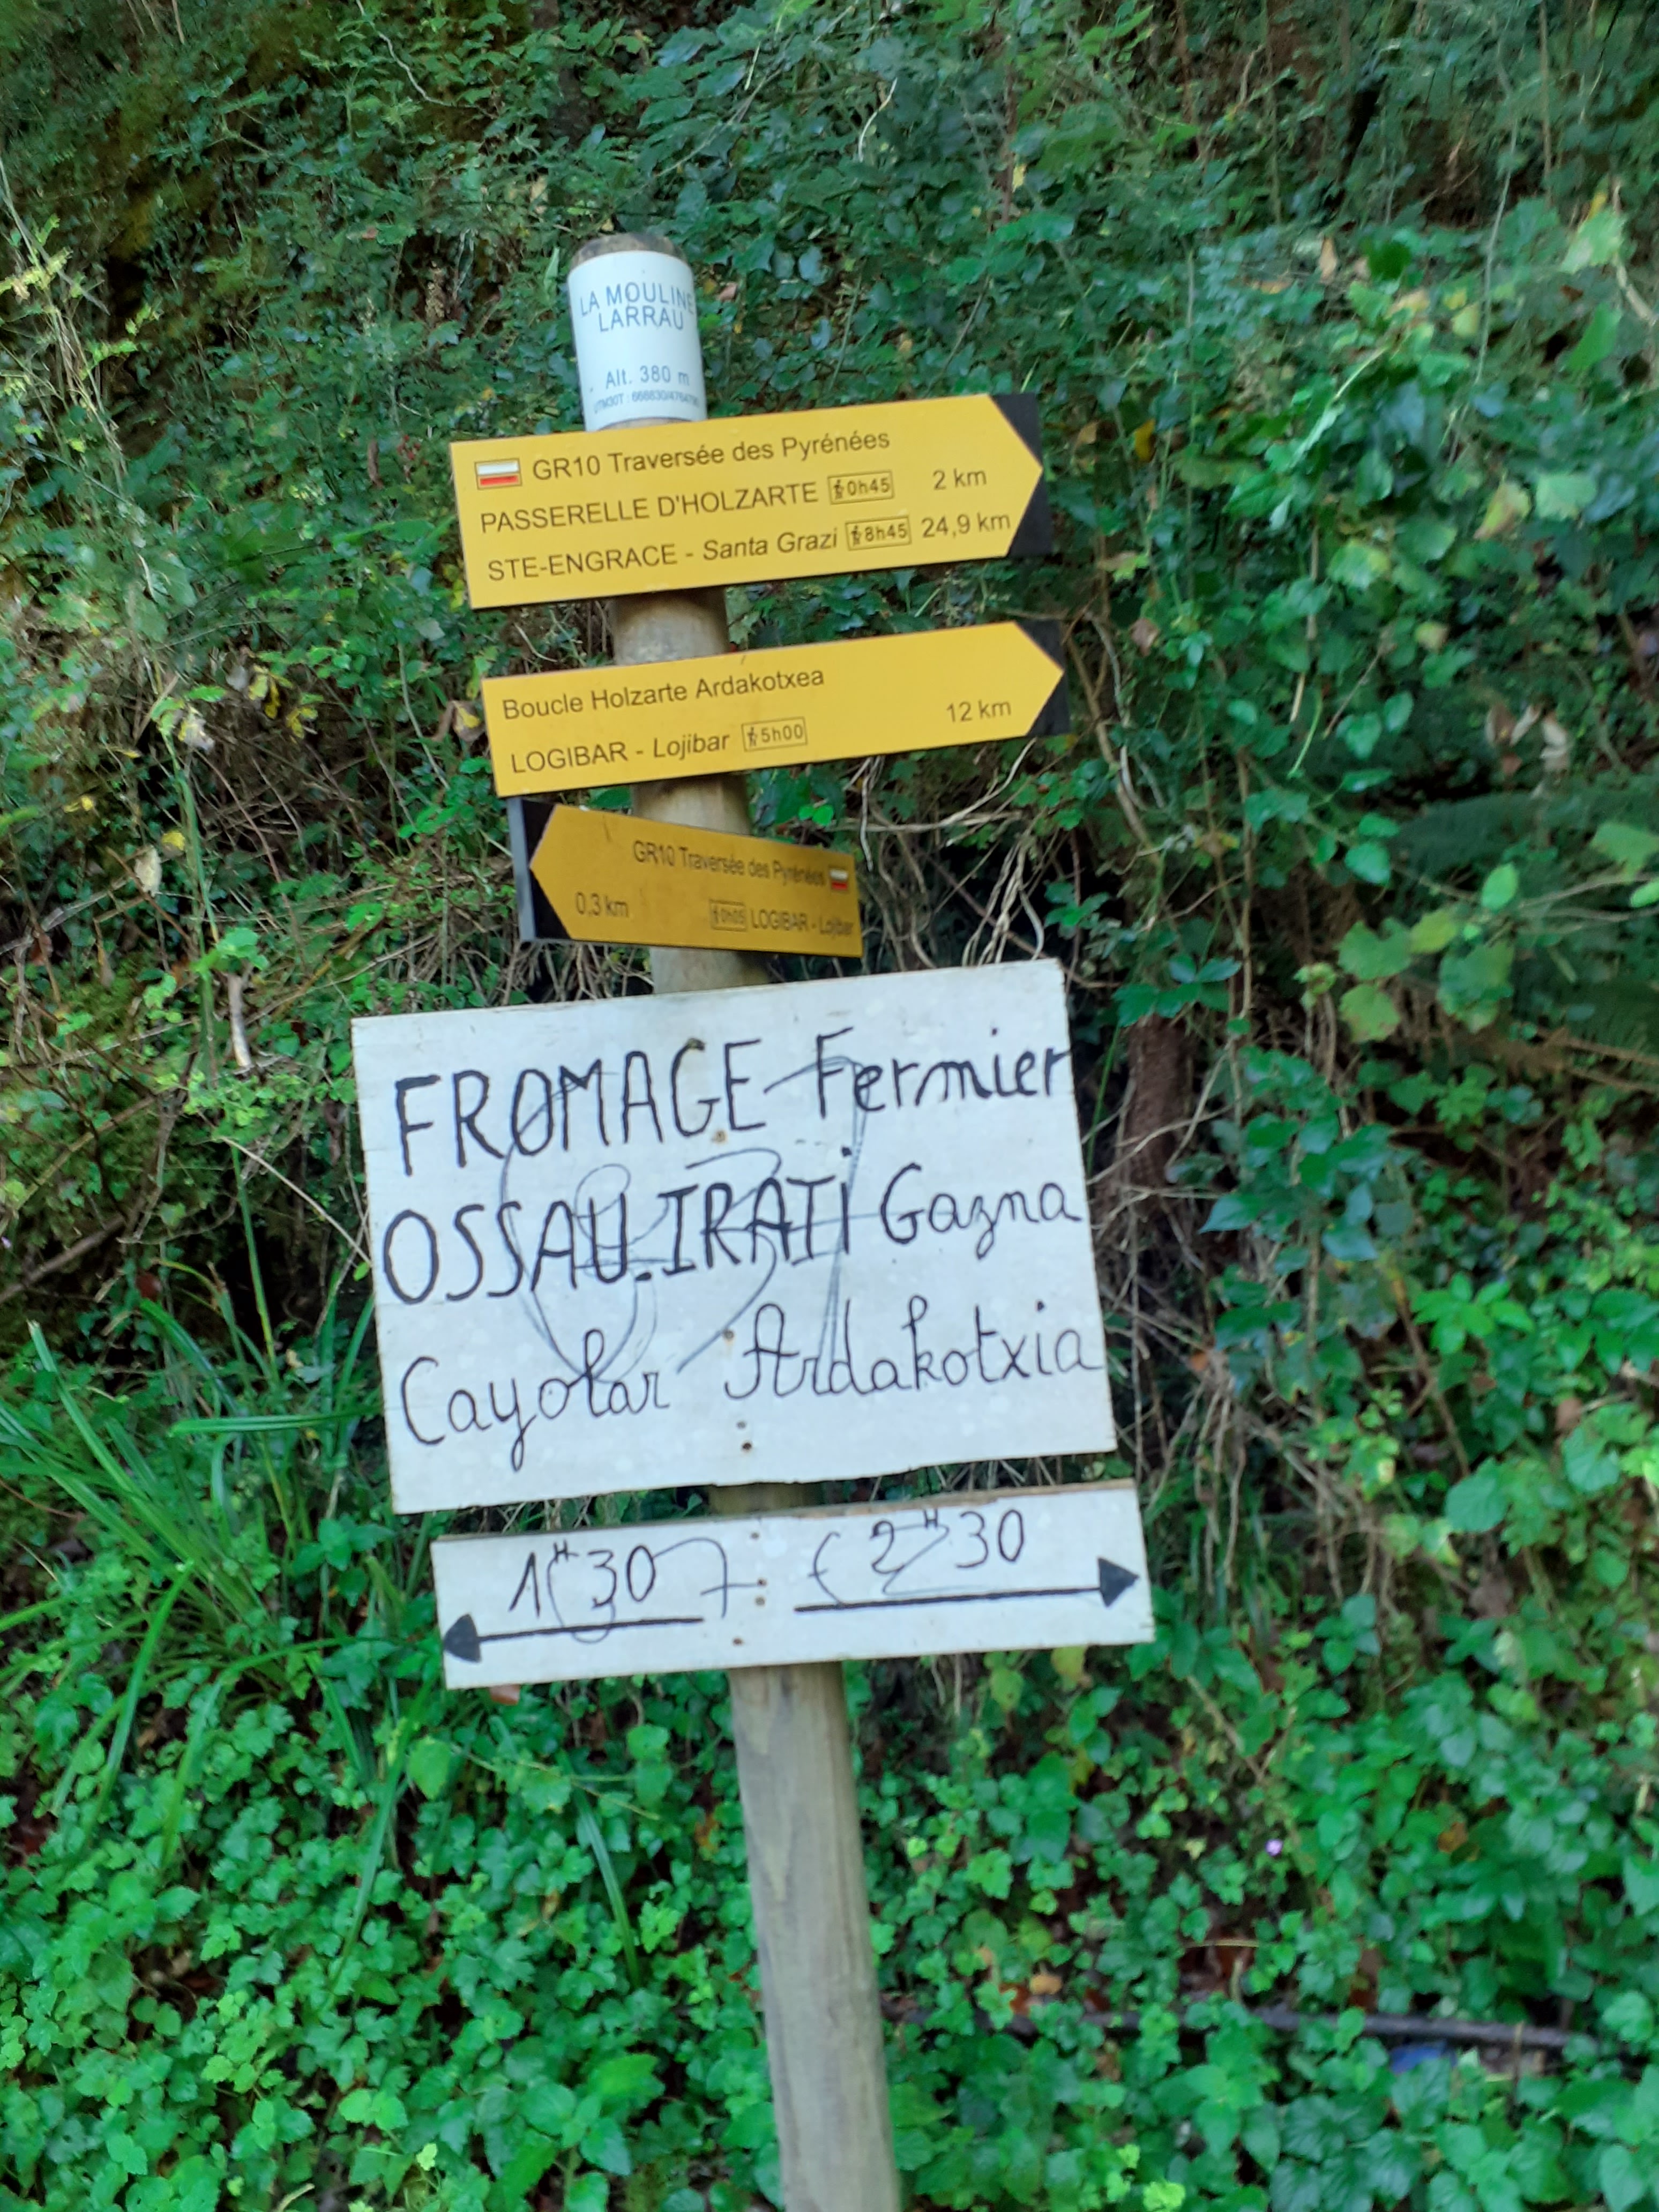 LA MOULINE
LARRAU
Alt. 380 m
GR10 Traversée des Pyrénées
PASSERELLE D'HOLZARTE 0h45 2 km
STE-ENGRACE - Santa Grazi 8h45 24,9 km
Boucle Holzarte Ardakotxea
LOGIBAR - Lojibar 5h00 12 km
GR10 Traversée des Pyrénées
0,3 km 0h05 LOGIBAR - Lojibar
FROMAGE Fermier
OSSAU.IRATI Gazna
Cayolar Ardakotxia
1H30 2H30